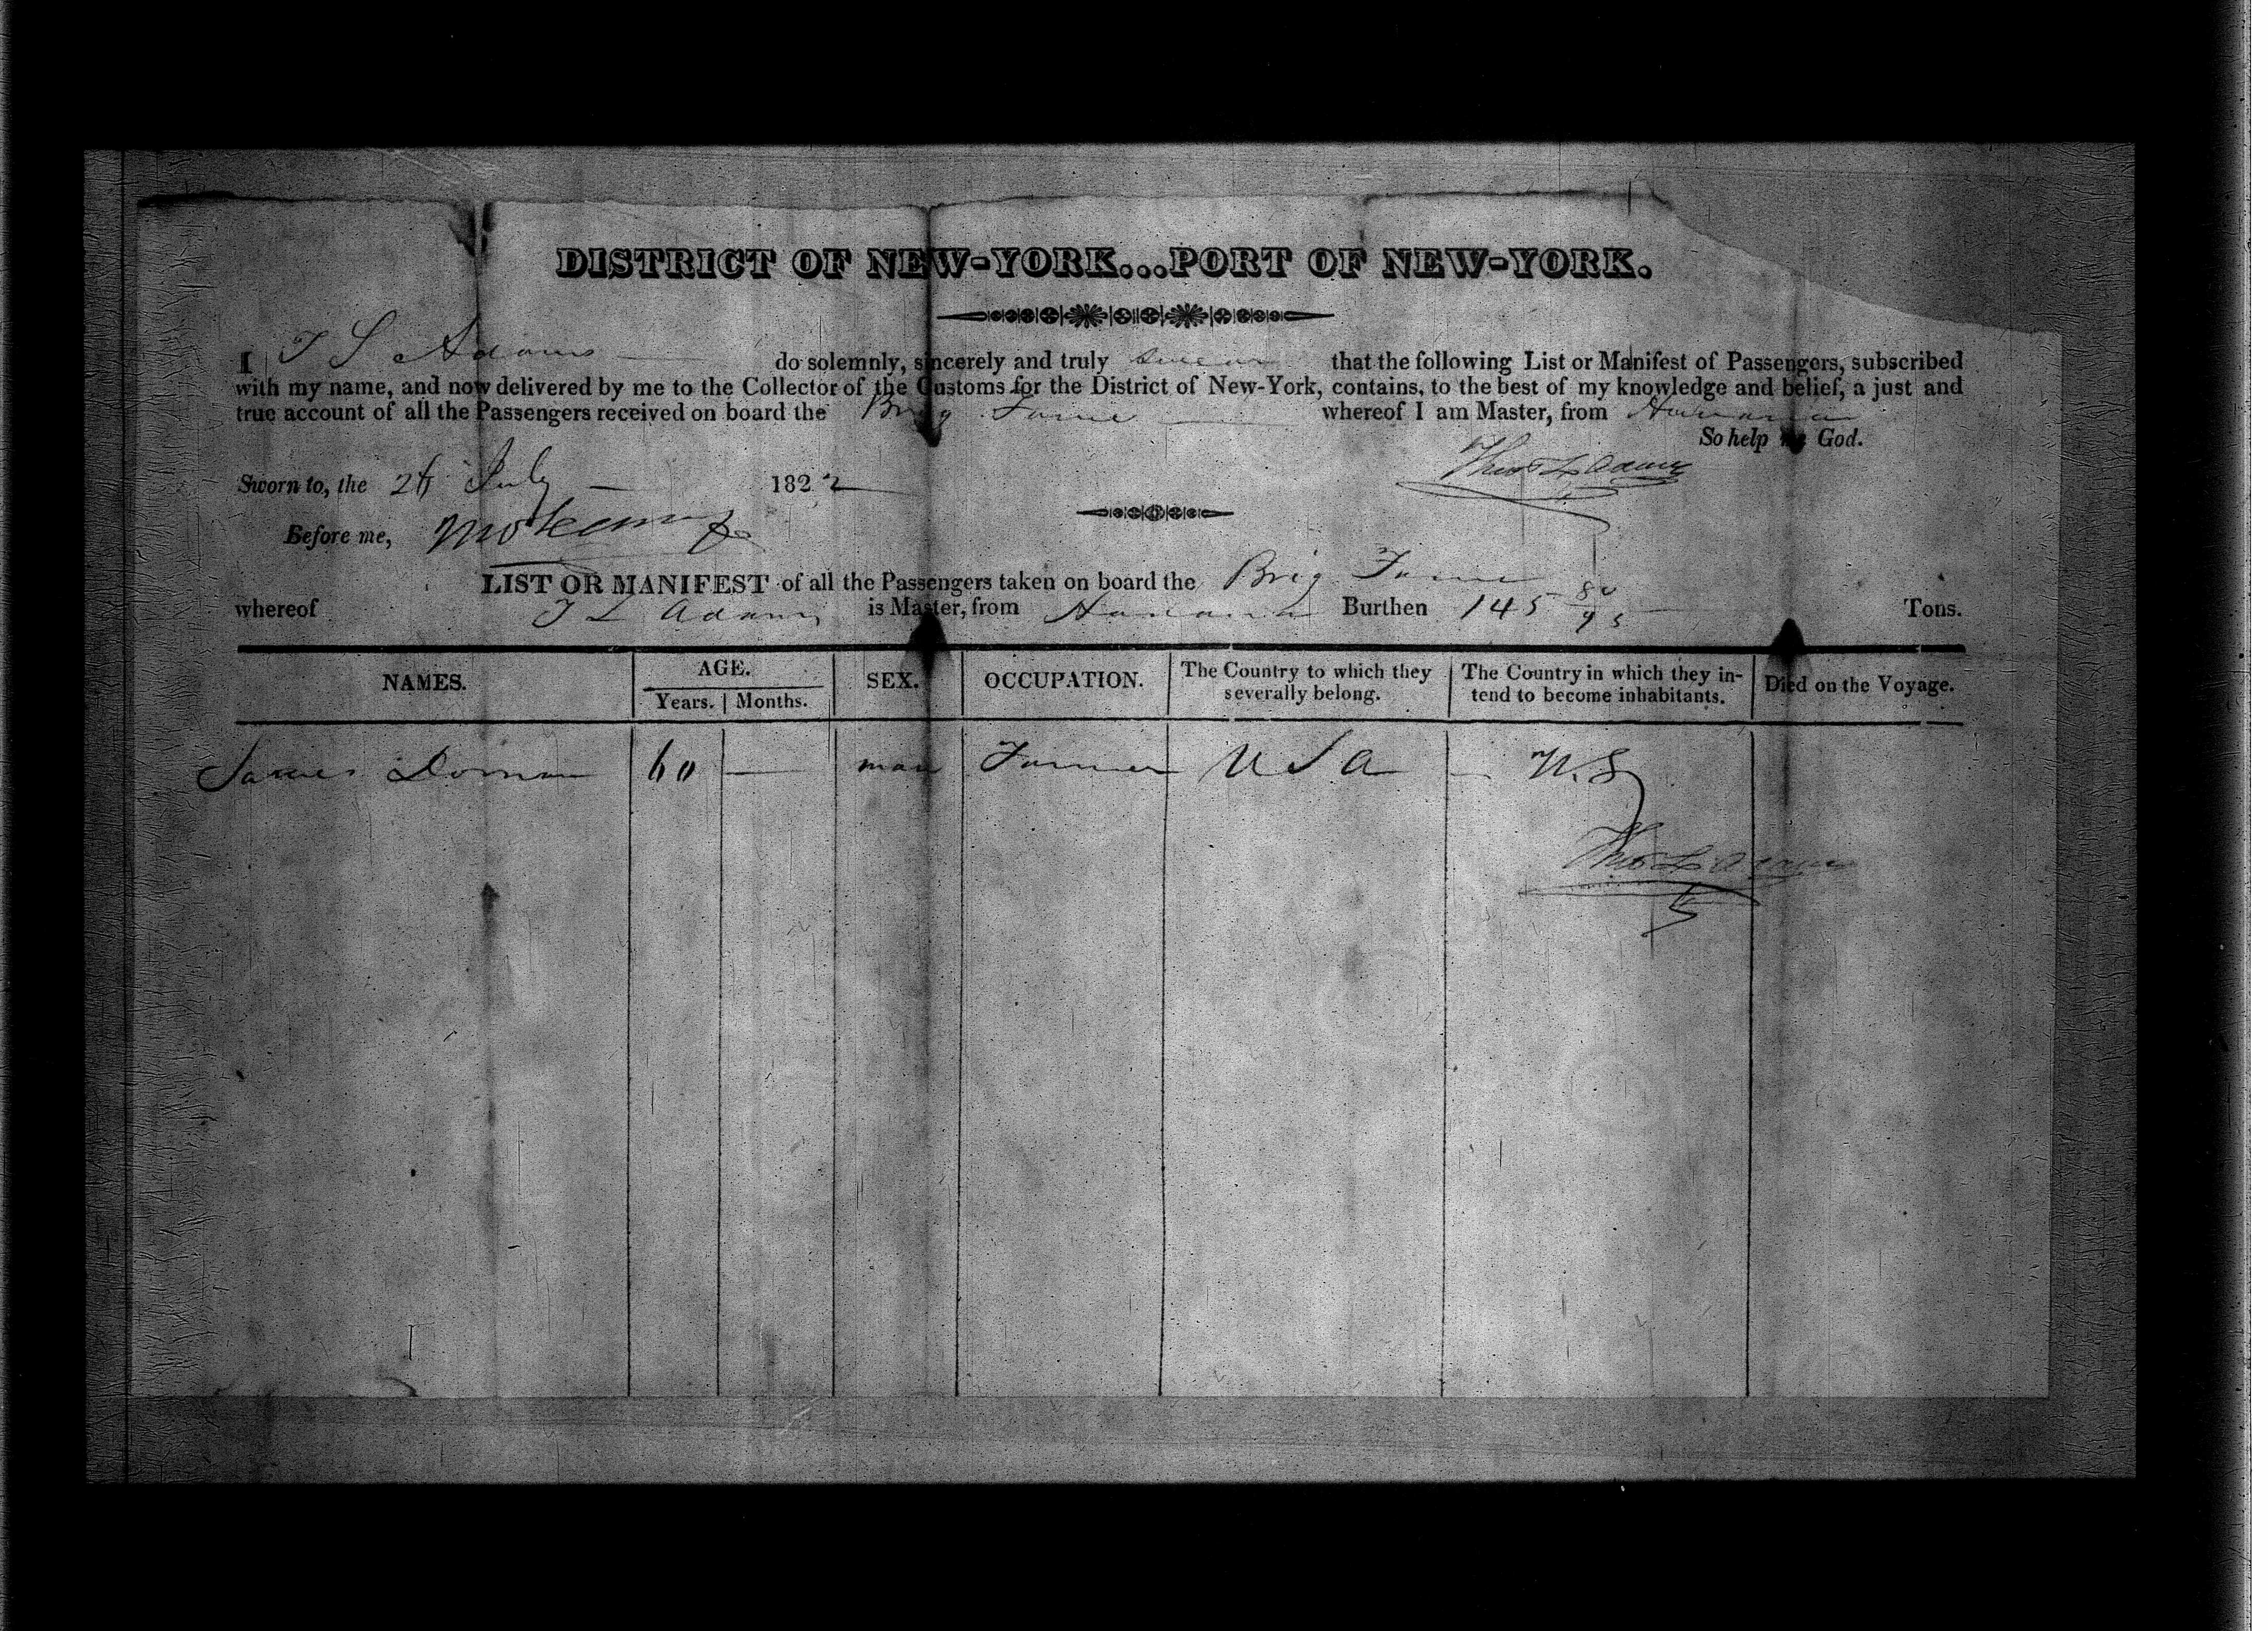 DISTRICT OF NEW-YORK...PORT OF NEW-YORK.
I T L Adams do solemnly, sincerely and truly swear that the following List or Manifest of Passengers, subscribed
with my name, and now delivered by me to the Collector of the Customs for the District of New-York, contains, to the best of my knowledge and belief, a just and
true account of all the Passengers received on board the Brig Fame whereof I am Master, from Havana
So help me God.
Sworn to, the 26 July 1822
Thos L Adams
Before me,
LIST OR MANIFEST of all the Passengers taken on board the Brig Fame
whereof T L Adams is Master, from Havana Burthen 145 Tons.
NAMES. AGE. Years. Months. SEX. OCCUPATION. The Country to which they severally belong. The Country in which they intend to become inhabitants. Died on the Voyage.
James 60 — man Farmer U S A U.S
Thos L Adams